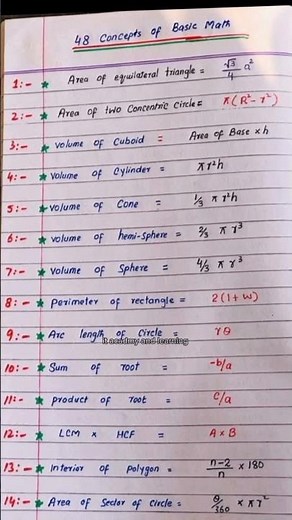 48 Concepts of Basic Math
1:- ★ Area of equilateral triangle = √3/4 a²
2:- ★ Area of two Concentric Circle = π(R²-r²)
3:- ★ volume of Cuboid = Area of Base × h
4:- ★ volume of Cylinder = πr²h
5:- ★ volume of Cone = 1/3 πr²h
6:- ★ volume of hemi-sphere = 2/3 πr³
7:- ★ volume of Sphere = 4/3 πr³
8:- ★ Perimeter of rectangle = 2(l+w)
9:- ★ Arc length of Circle = rθ
It academy and learning
10:- ★ Sum of root = -b/a
11:- ★ product of root = c/a
12:- ★ LCM × HCF = A×B
13:- ★ Interior of polygon = n-2/n × 180
14:- ★ Area of Sector of circle = θ/360 × πr²